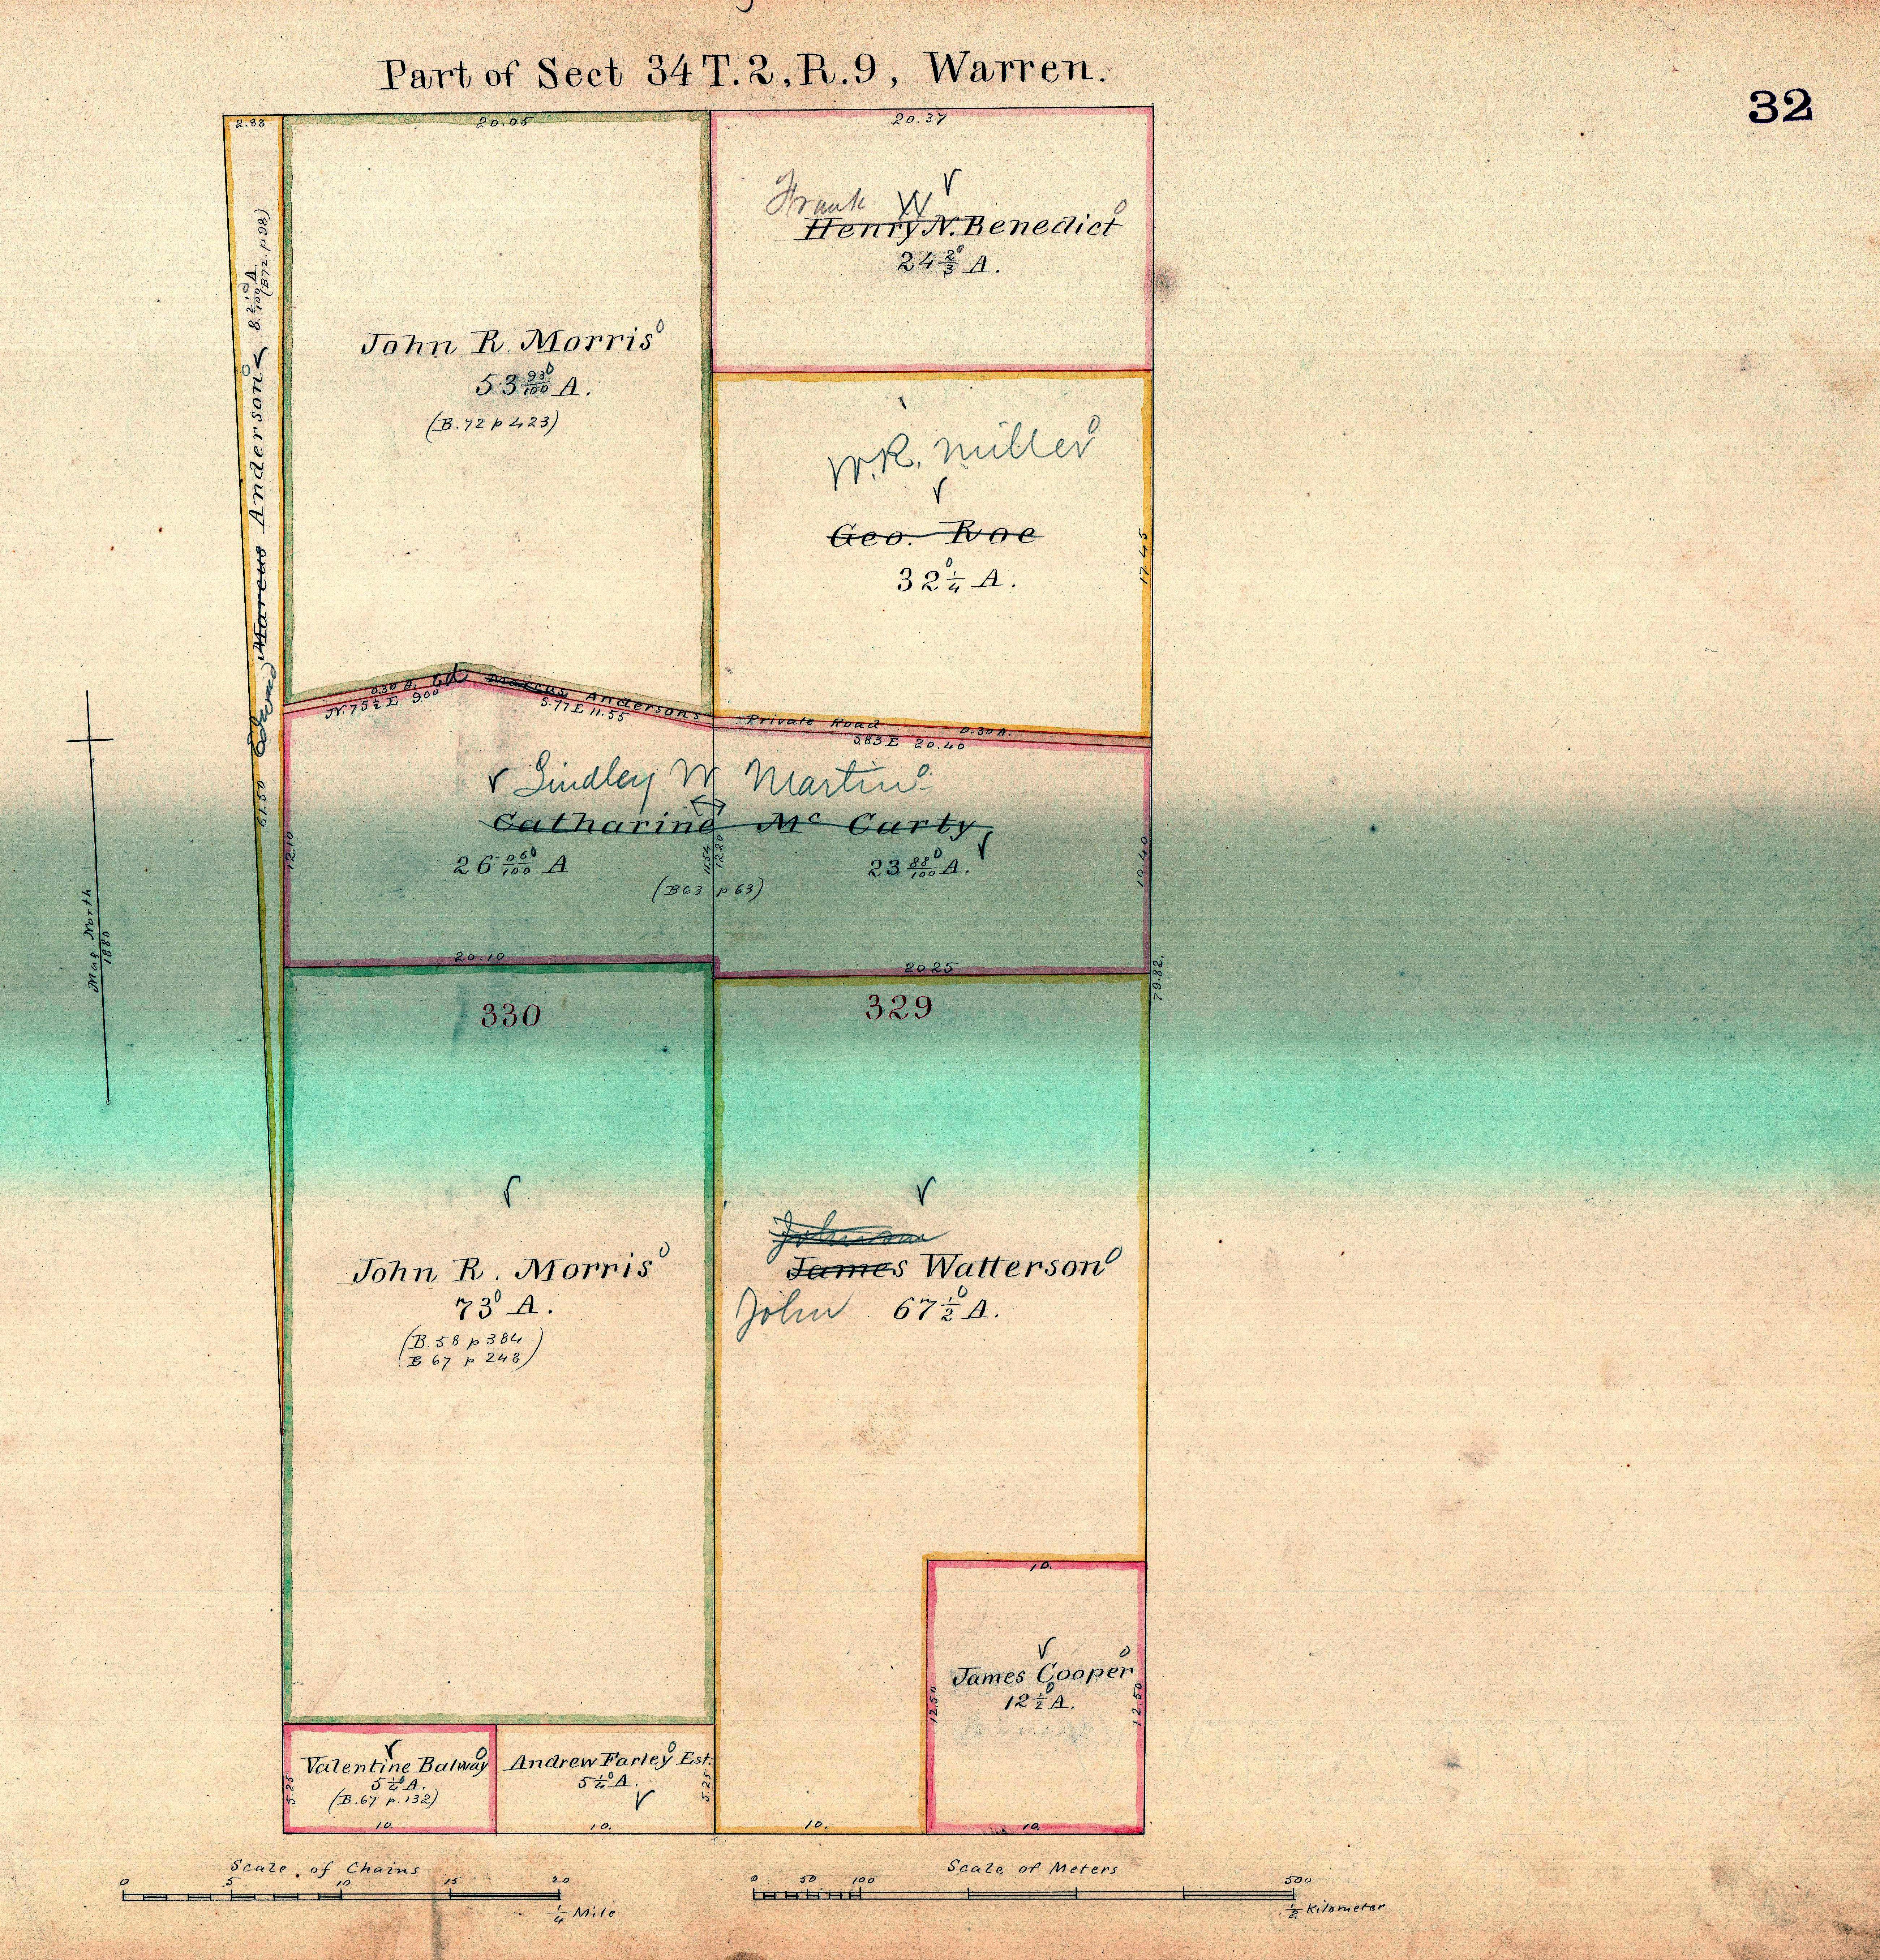 Part of Sect 34 T. 2, R. 9, Warren.
32
2.88
20.05
20.37
Frank W
Henry N. Benedict
24 2/3 A.
John R. Morris
53 93/100 A.
(B. 72 p 423)
61.50 Edward Marcus Anderson 8 21/100 A.
(B72. p 98)
W.R. Miller
Geo. Roe
32 1/4 A.
17.45
0.30 A. Ed Marcus Andersons Private Road 0.30 A.
N. 75 1/2 E 9.00
S.77 E 11.55
S83 E 20.40
Lindley W Martin
Catharine Mc Carty
26 06/100 A
23 88/100 A.
(B63 p 63)
12.10
11.54
12.20
10.40
20.10
20.25
79.82.
Mag North
1880
330
329
John R. Morris
73 A.
(B. 58 p 384
B 67 p 248)
Johnson
James Watterson
John 67 1/2 A.
10.
James Cooper
12 1/2 A.
12.50
12.50
Valentine Balway
5 1/4 A.
(B. 67 p. 132)
5.25
Andrew Farley Est.
5 1/4 A.
5.25
10.
10.
10.
10.
Scale of Chains
0 5 10 15 20
1/4 Mile
Scale of Meters
0 50 100 500
1/2 Kilometer